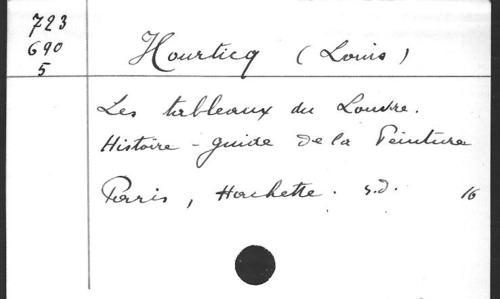 723
690
5
Hourticq (Louis)
Les tableaux du Louvre.
Histoire - guide de la Peinture
Paris, Hachette. s.d. 16